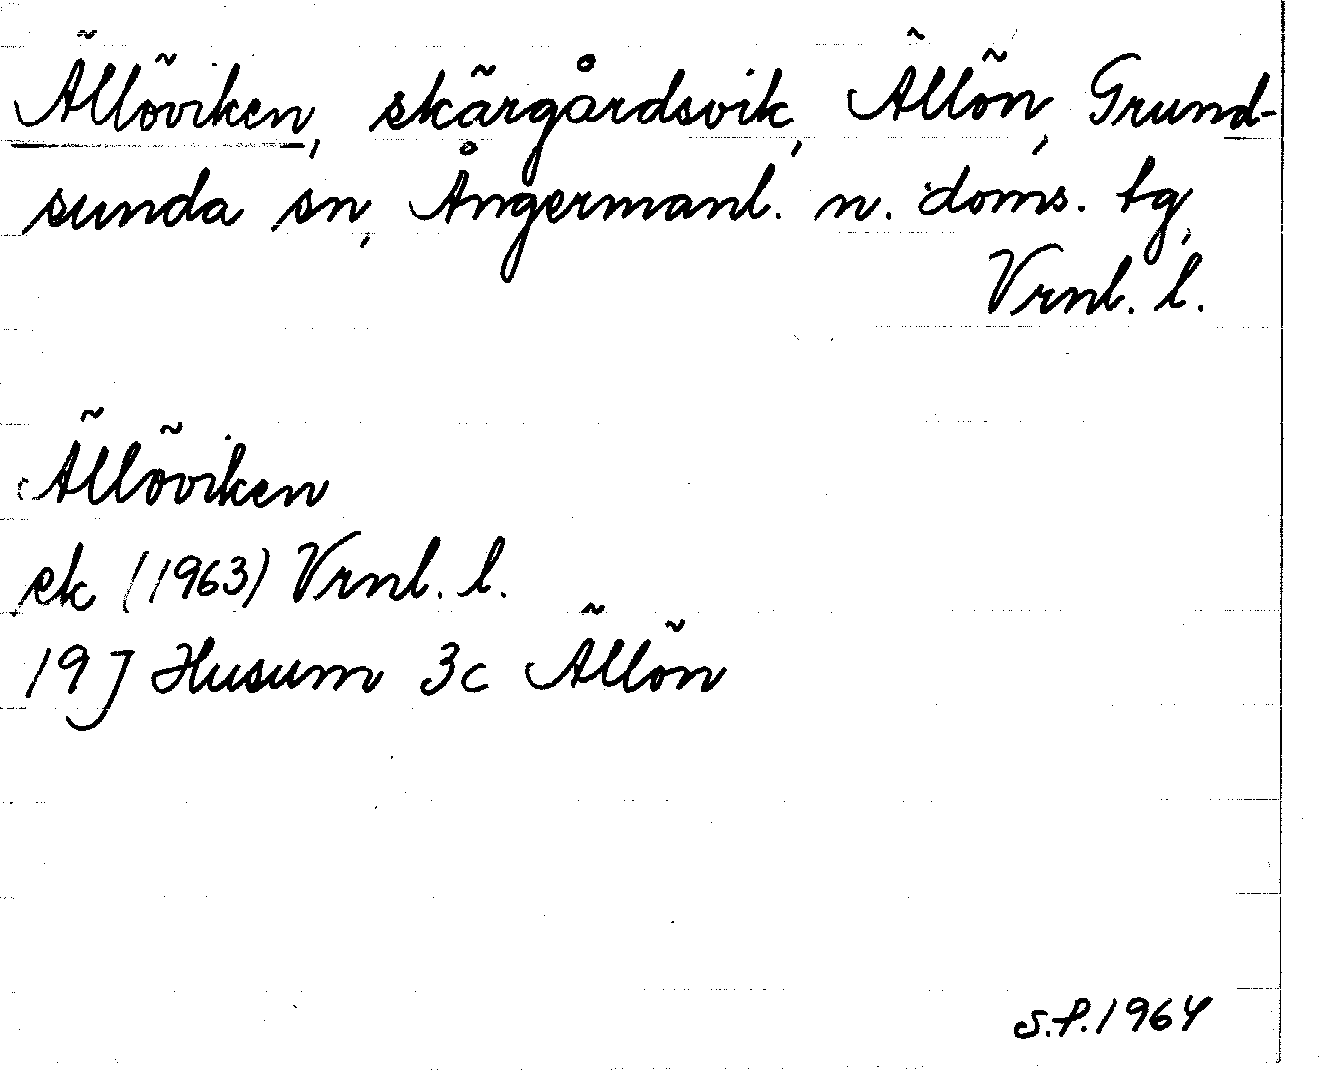 Ällöviken, skärgårdsvik, Ällön, Grund-
sunda sn, Ångermanl. n. doms. tg,
Vrnl. l.
Ällöviken
ek (1963) Vrnl. l.
19J Husum 3c Ällön
S.P. 1964